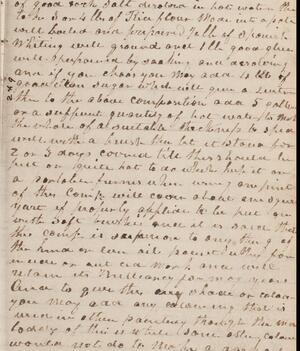 of good rock salt desolvd in hot water
to 3 or 4 lb of Rice flour Made into a paste
well boiled and prepared 1/2 lb of Spanish
Whiting well ground and 1 lb good glue
well prepared by soaking and desolving
and if you choos you May add 4 lb of
good clean sugar which will give a
then to the above composition add 5 gallon
or a sufficent quantity of hot water to Make
the whole of a suitable thickness to spread
well with a brush then let it stand for
2 or 3 days coverd tell this should be
put on quite hot to do which keep it on
a portable furnis when using one pint
of this Comp will cover about one square
yard if properly applied to be put on
with soft brushes and it is said that
this Comp is superior to any thing of
the kind or even oil paint either for
inside or out side work and will
retain its Brilliancy for many years
And to give this any shade or colour
you may add any colouring that is
used in other painting though the main
body of this is white some other colours
would not do to Make a